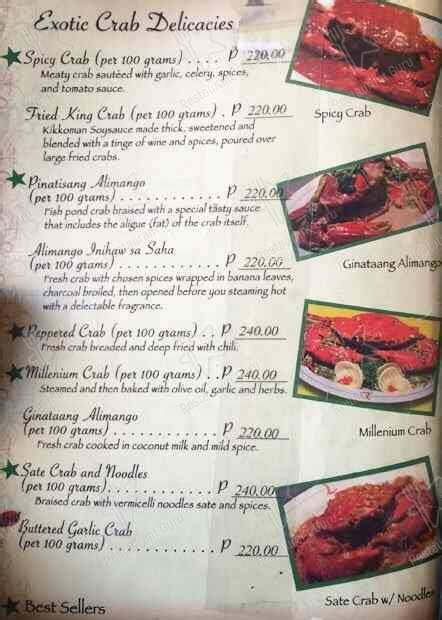 Exotic Crab Delicacies
Spicy Crab (per 100 grams) . . . . P 220.00
Meaty crab sautéed with garlic, celery, spices,
and tomato sauce.
Spicy Crab
Fried King Crab (per 100 grams) . P 220.00
Kikkoman Soysauce made thick, sweetened and
blended with a tinge of wine and spices, poured over
large fried crabs.
Pinatisang Alimango
(per 100 grams) . . . . . . . . . . . . P 220.00
Fish pond crab braised with a special tasty sauce
that includes the aligue (fat) of the crab itself.
Ginataang Alimango
Alimango Inihaw sa Saha
(per 100 grams) . . . . . . . . . . . . P 220.00
Fresh crab with chosen spices wrapped in banana leaves,
charcoal broiled, then opened before you steaming hot
with a delectable fragrance.
Peppered Crab (per 100 grams) . . P 240.00
Fresh crab breaded and deep fried with chili.
Millenium Crab (per 100 grams) . . P 240.00
Steamed and then baked with olive oil, garlic and herbs.
Millenium Crab
Ginataang Alimango
(per 100 grams) . . . . . . . . . . . . P 220.00
Fresh crab cooked in coconut milk and mild spice.
Sate Crab and Noodles
(per 100 grams) . . . . . . . . . . . . P 240.00
Braised crab with vermicelli noodles sate and spices.
Buttered Garlic Crab
(per 100 grams) . . . . . . . . . . . . P 220.00
Sate Crab w/ Noodles
Best Sellers